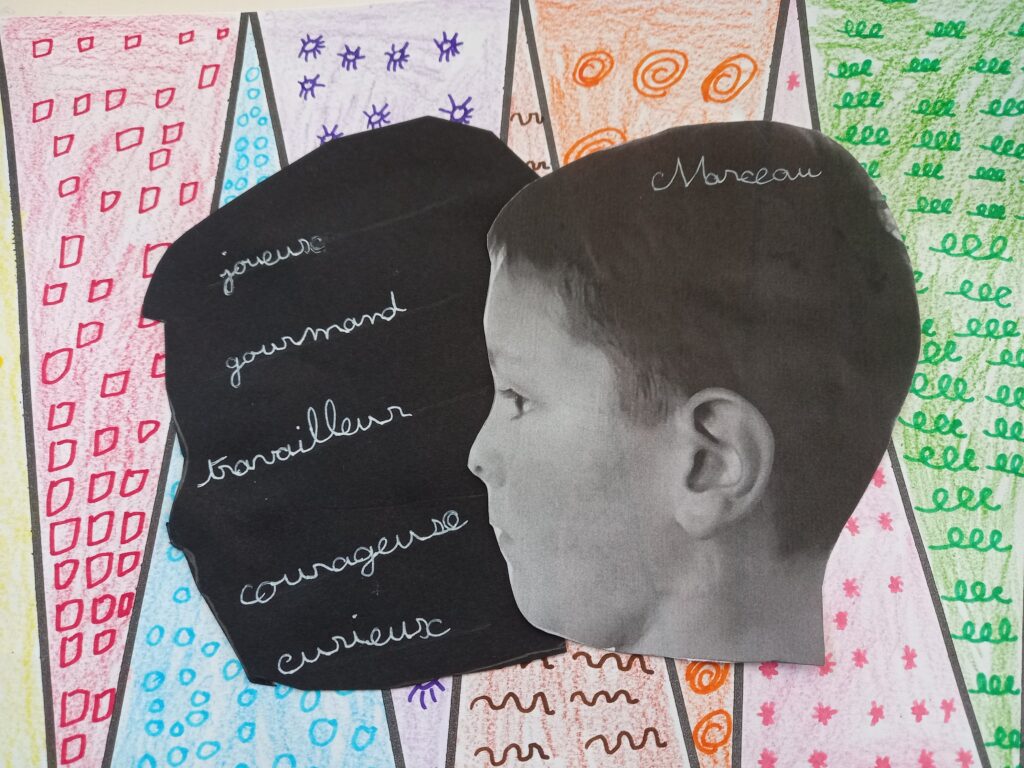 joyeux
gourmand
travailleur
courageuse
curieux
Marceau